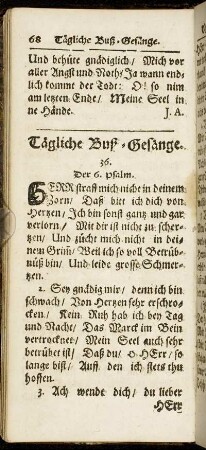 68 Tägliche Buß-Gesänge.
Und behüte gnädiglich/ Mich vor
aller Angst und Noth/ Ja wann end-
lich kommt der Todt: O! so nim
am letzten Ende/ Meine Seel in
ne Hände. J. A.
Tägliche Buß-Gesänge.
36.
Der 6. Psalm.
HERR straff mich nicht in deinem
Zorn/ Daß bitt ich dich von
Hertzen/ Ich bin sonst gantz und gar
verlorn/ Mit dir ist nicht zu scher-
tzen/ Und züch mich nicht in dei-
nem Grim/ Weil ich so voll Betrüb-
nüß bin/ Und leide grosse Schmer-
tzen.
2. Sey gnädig mir/ denn ich bin
schwach/ Von Hertzen sehr erschro-
cken/ Kein Ruh hab ich bey Tag
und Nacht/ Das Marck im Bein
vertrocknet/ Mein Seel auch sehr
betrübet ist/ Daß du/ O HErr/ so
lange bist/ Auff den ich stets thu
hoffen.
3. Ach wende dich/ du lieber
HErr